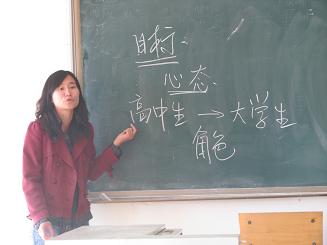 目标
心态
高中生→大学生
角色